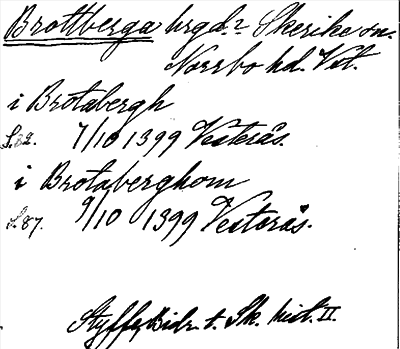 Brottberga hrgd. Skerike sn.
Norrbo hd. Vst.
i Brotabergh
S.82. 7/10 1399 Vesterås.
i Brotaberghom
S.87. 9/10 1399 Vesterås.
Styffe, Bidr. t. Sk. hist. II.